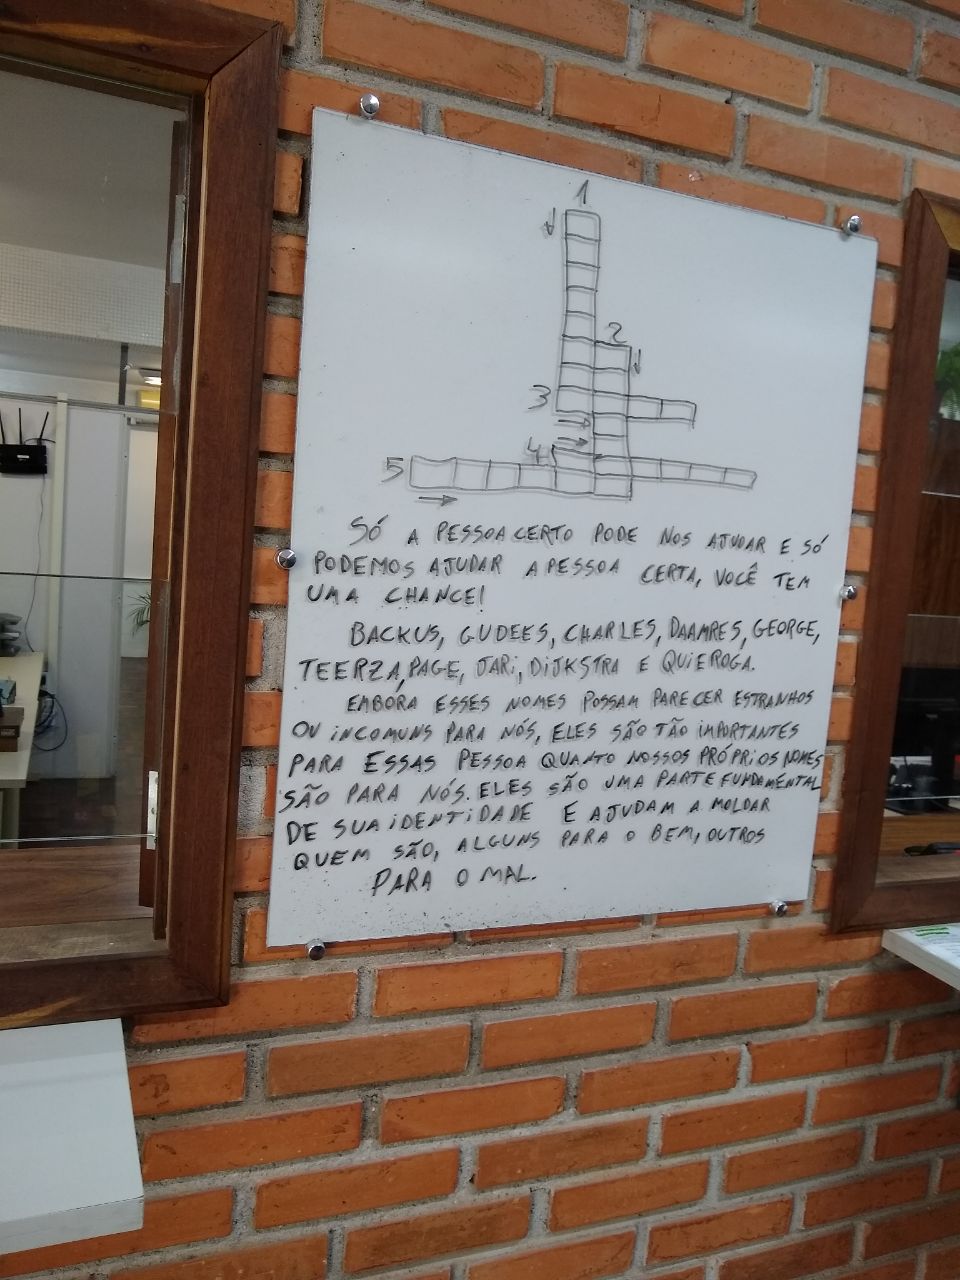 1
2
3
4
5
SÓ A PESSOA CERTO PODE NOS AJUDAR E SÓ
PODEMOS AJUDAR A PESSOA CERTA, VOCÊ TEM
UMA CHANCE!
BACKUS, GUDEES, CHARLES, DAAMRES, GEORGE,
TEERZA, PAGE, JARI, DIJKSTRA E QUIEROGA.
EMBORA ESSES NOMES POSSAM PARECER ESTRANHOS
OU INCOMUNS PARA NÓS, ELES SÃO TÃO IMPORTANTES
PARA ESSAS PESSOA QUANTO NOSSOS PRÓPRIOS NOMES
SÃO PARA NÓS. ELES SÃO UMA PARTE FUNDAMENTAL
DE SUA IDENTIDADE E AJUDAM A MOLDAR
QUEM SÃO, ALGUNS PARA O BEM, OUTROS
PARA O MAL.